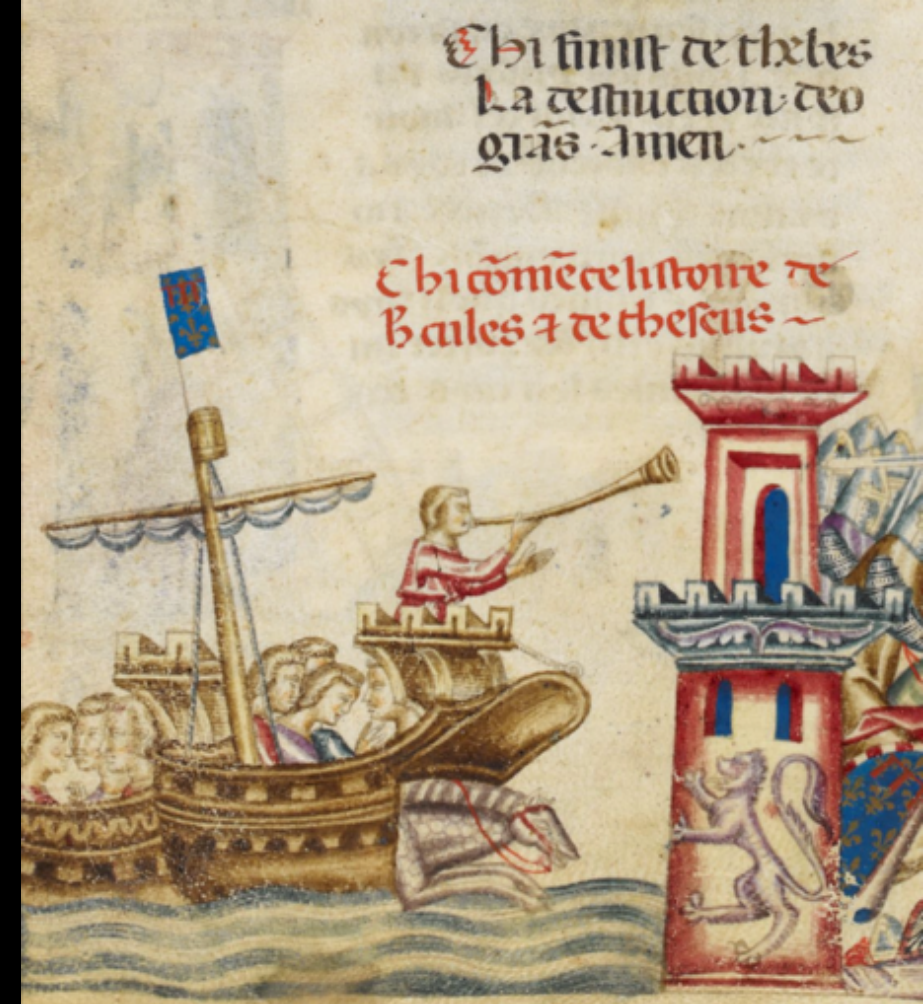 Chi finist de thebes
La destruction deo
grãs · Amen ·
Chi cõmẽce listoire de
Hcules ⁊ de theseus